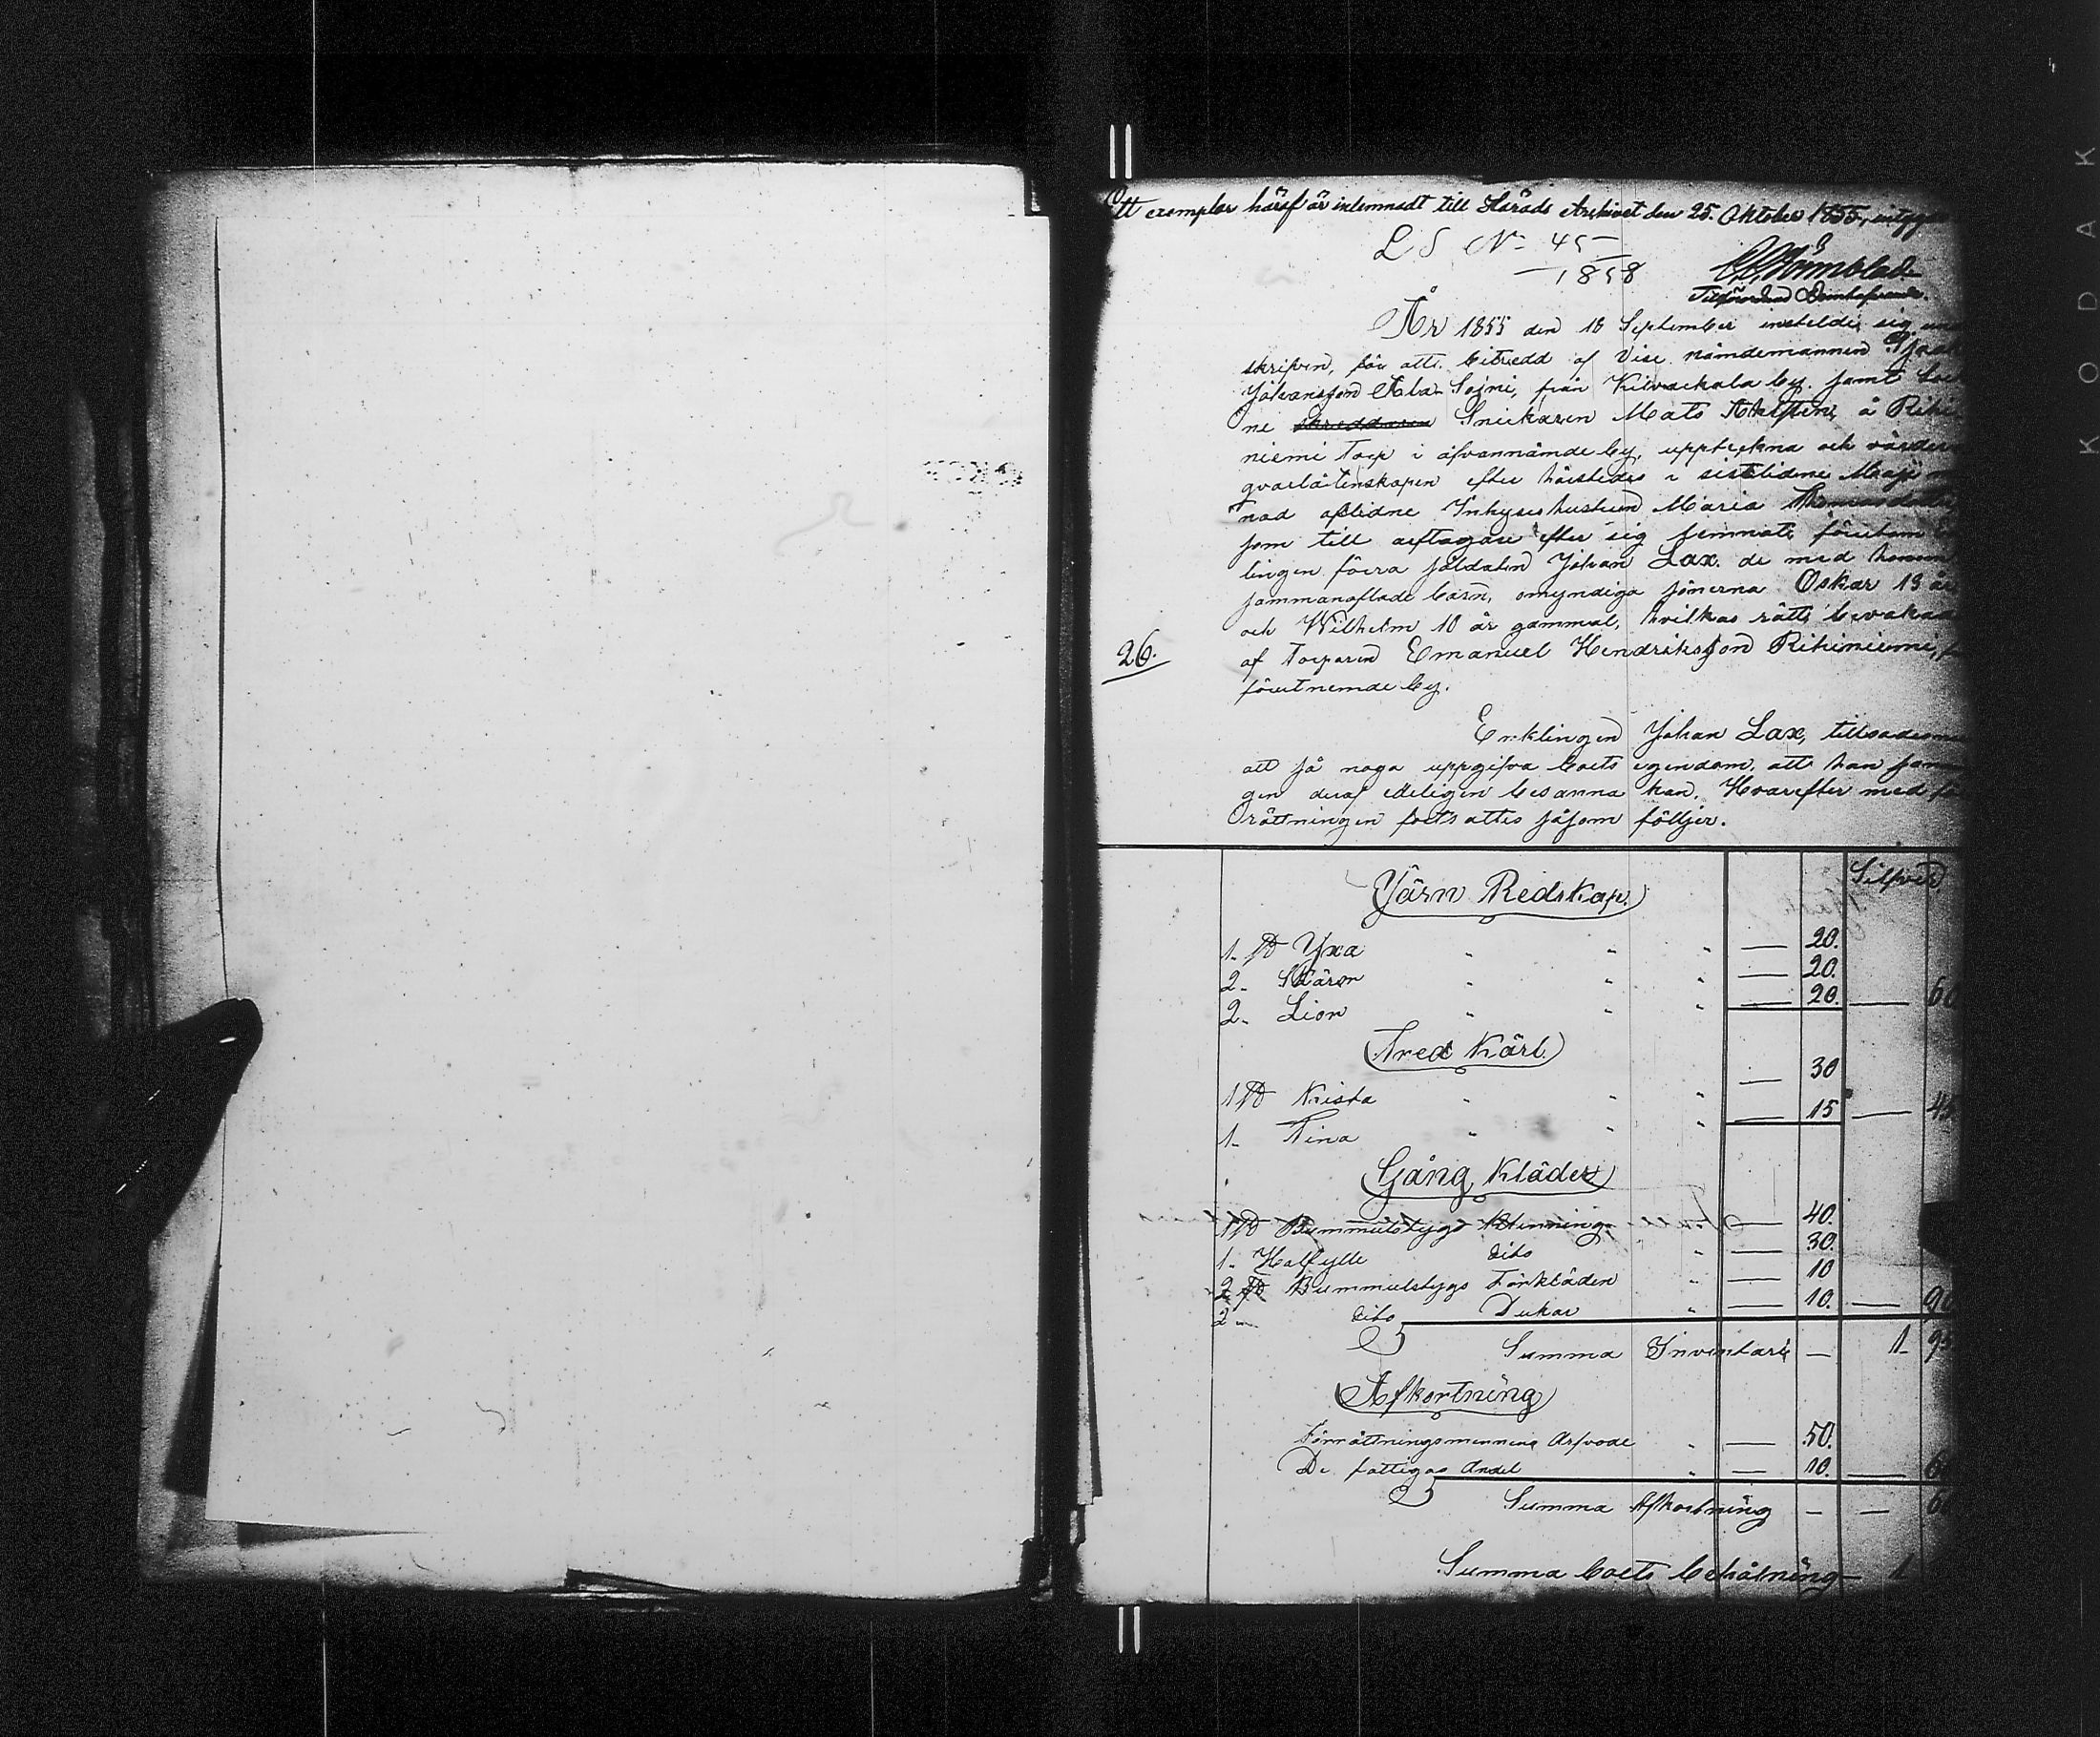 Ett exemplar häraf är inlemnadt till Härads Arkivet den 25. Oktober 1855, intygar
L S No 45
1858
År 1855 den 18 September instelde sig
skrifven, för att bitredd af Vise nämdemannen
Johansson Ala Sojni, från Kitvackala by. samt
ne skreddaren Snickaren Mats å
niemi Torp i ofvannämde by, uppteckna och värdera
qvarlåtenskapen efter härstedes i sistlidne Maji
nad aflidne Inhyses hustrun Maria
som till arftagare efter sig lemnat, förutom
lingen förra soldaten Johan Lax. de med honom
sammanaflade barn, omyndiga sönerna Oskar 13 år
och Wilhelm 10 år gammal, hvilkas rätt bevakades
af Torparen Emanuel Hendriksson Rihiniemi,
förutnemde by.
26.
Enklingen Johan Lax, tillsades
att så noga uppgifva boets egendom, att han
gen deraf edeligen besanna kan. Hvarefter med
rättningen fortsattes såsom följer.
Silfver
Järn Redskap.
1. st Yxa — 20.
2. Skäror — 20.
2. Lior — 20. — 60
Träd Kärl.
30
1 st Krista
— 15 — 45
1. Tina
Gång Kläder
1 st Bummulstygs Klenning — 40.
1. Halfylle dito — 30.
2 st Bummulstygs Förkläden — 10
2 dito Dukar — 10. — 90
Summa Inventarie — 1 95
Afkortning
Förrättningsmännens Arfvode — 50.
De fattigas Andel — 10. — 60
Summa Afkortning — — 60
Summa boets behållning 1
KODAK